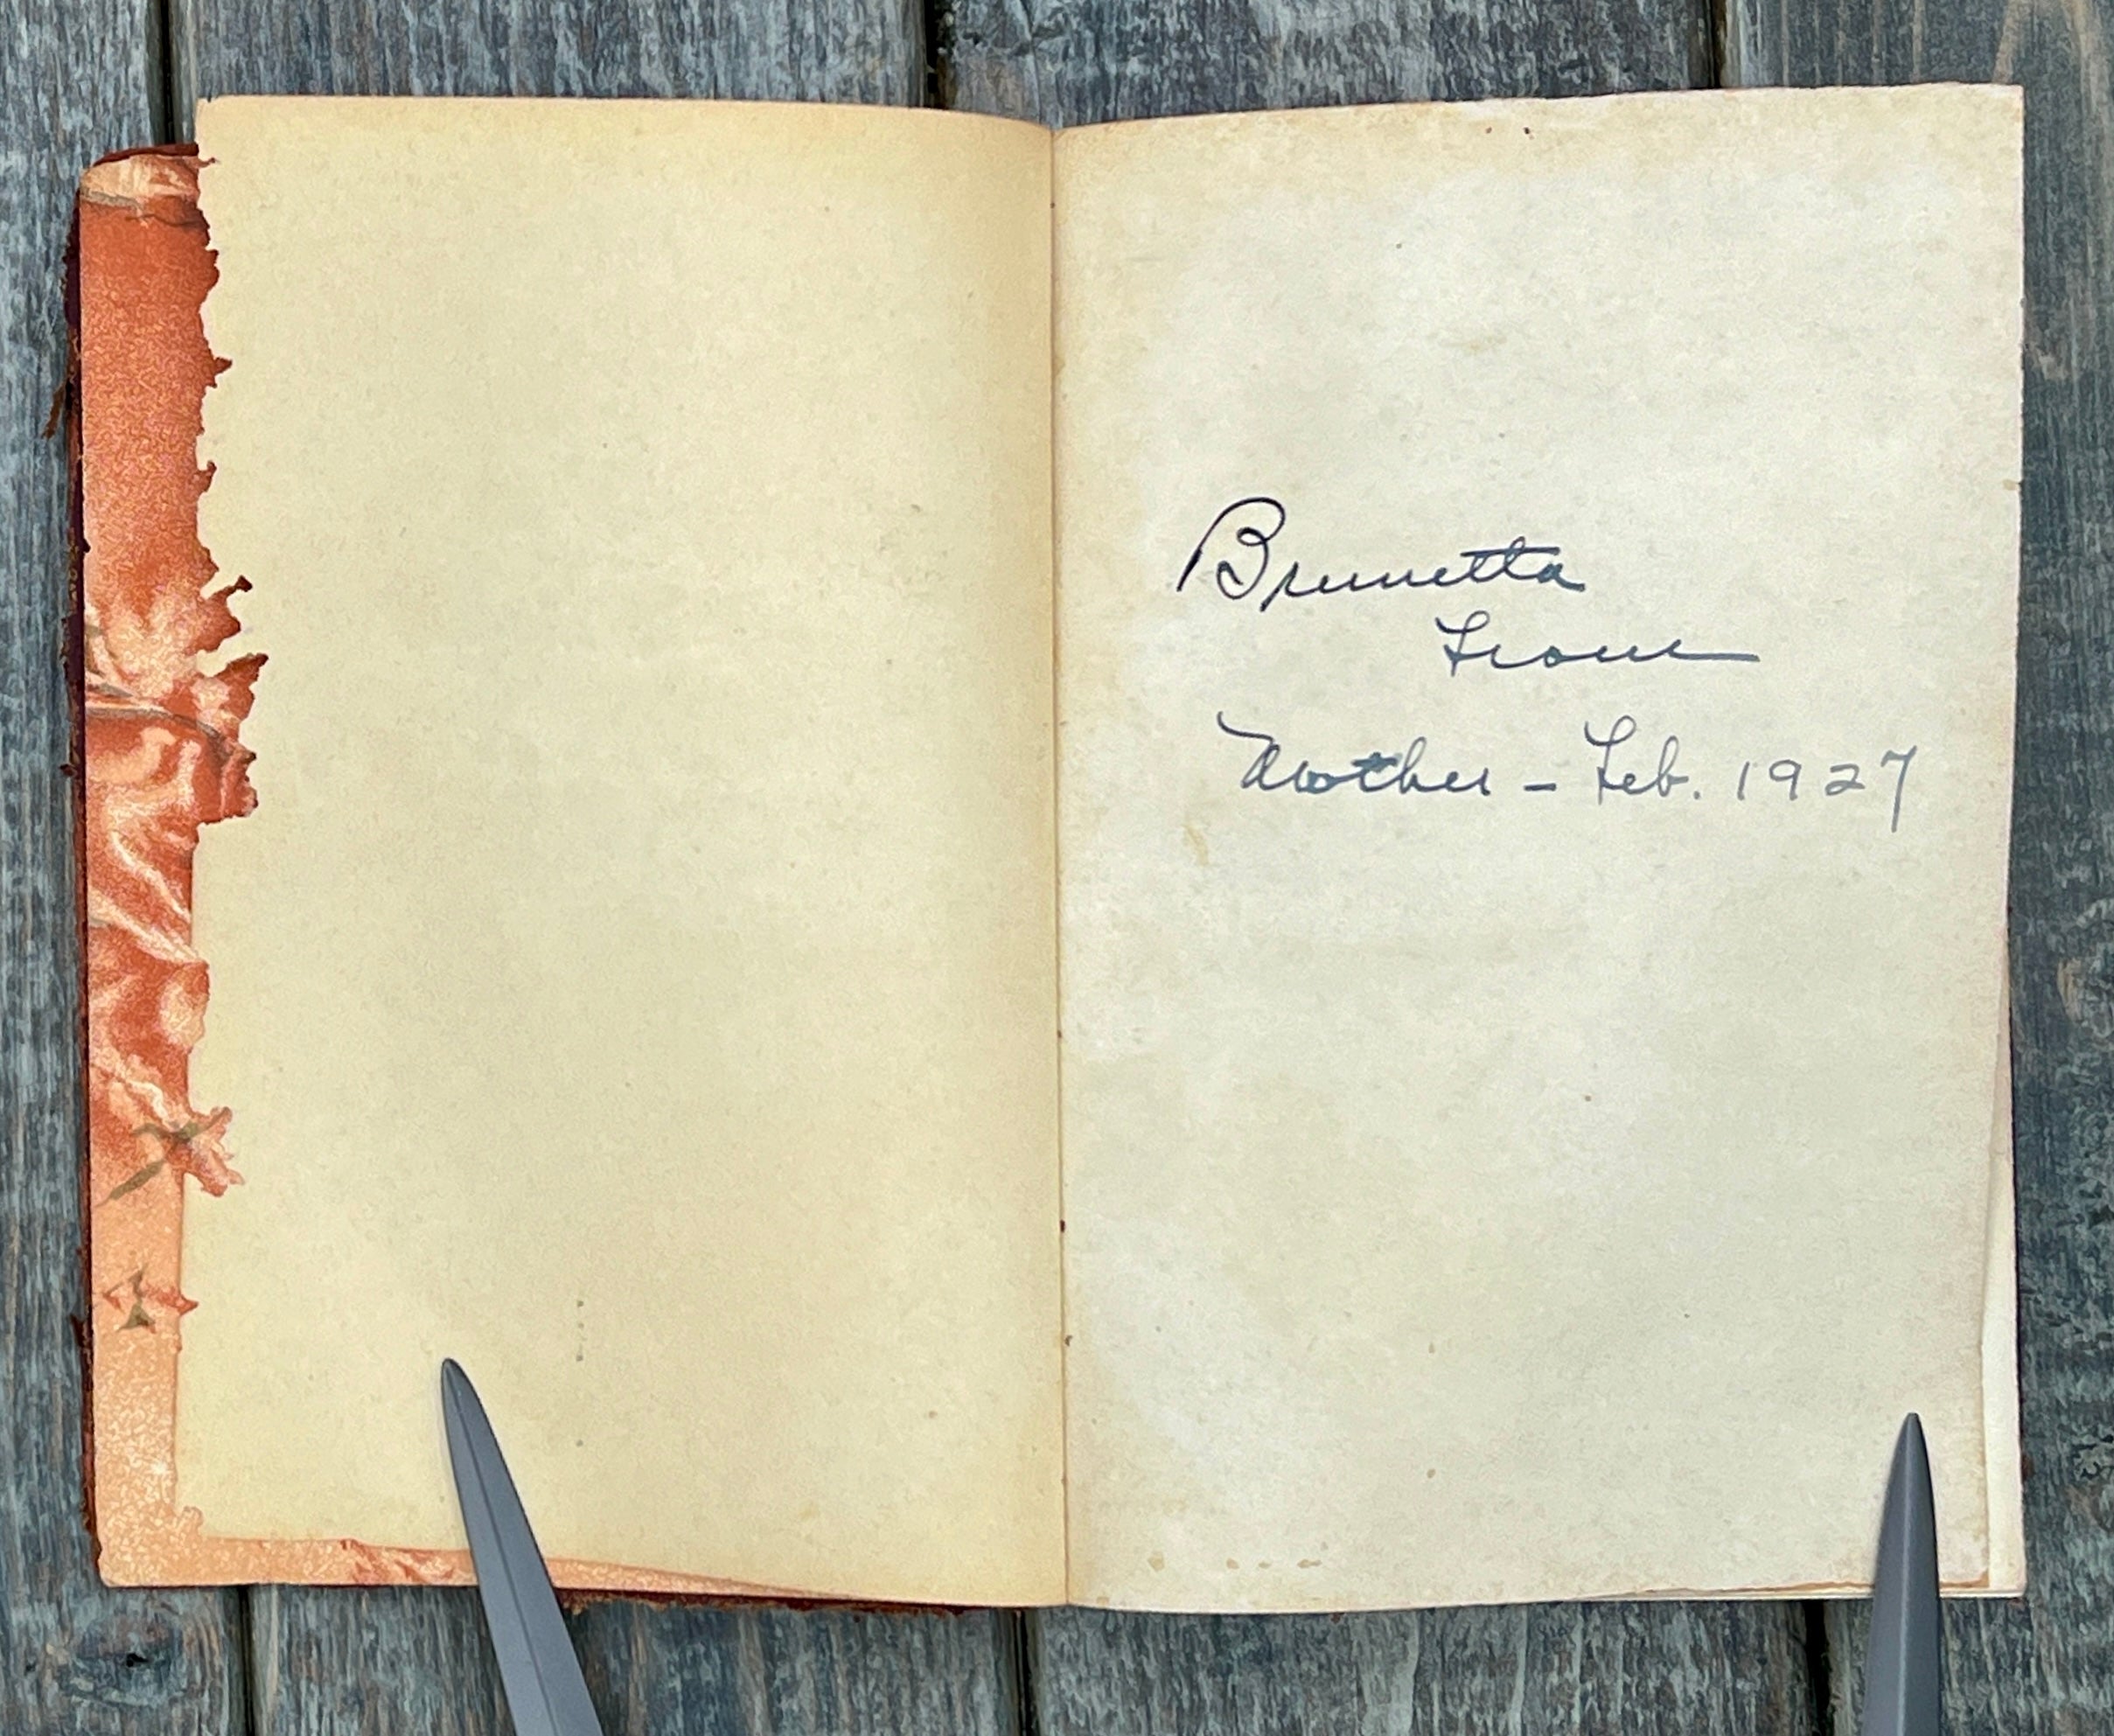 Brunetta
From
Mother - Feb. 1927